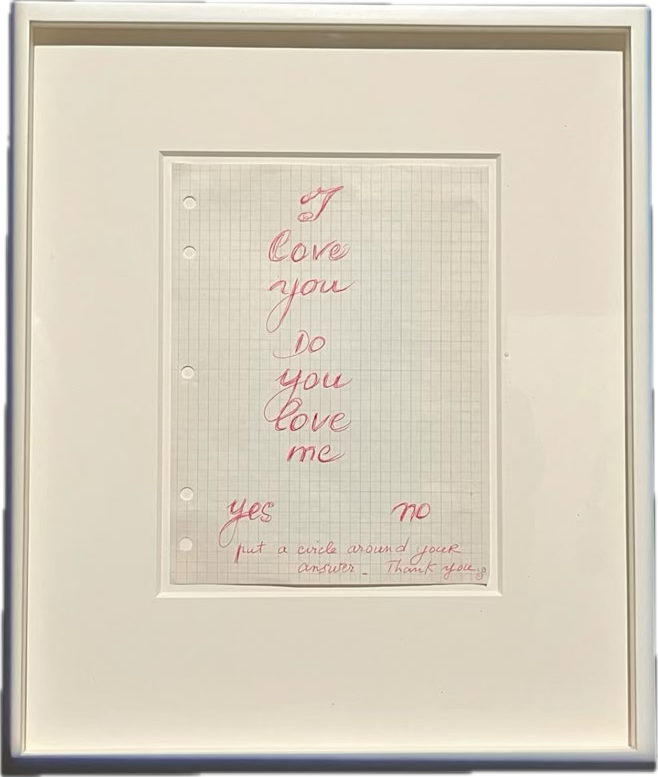 I
love
you
Do
you
love
me
yes no
put a circle around your
answer_ Thank you